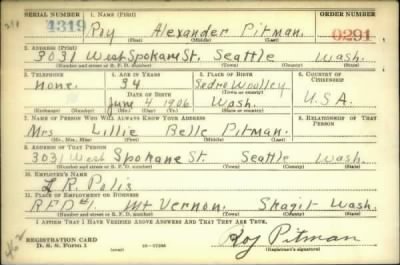 SERIAL NUMBER 1. NAME (Print) ORDER NUMBER
4319 Roy Alexander Pitman 0291
(First) (Middle) (Last)
2. ADDRESS (Print)
3031 West Spokane St. Seattle Wash.
(Number and street or R. F. D. number) (Town) (County) (State)
3. TELEPHONE 4. AGE IN YEARS 5. PLACE OF BIRTH 6. COUNTRY OF CITIZENSHIP
None. 34 Sedro Woolley
DATE OF BIRTH (Town or county)
June 4 1906 Wash. U.S.A.
(Mo.) (Day) (Yr.) (State or country)
7. NAME OF PERSON WHO WILL ALWAYS KNOW YOUR ADDRESS 8. RELATIONSHIP OF THAT PERSON
Mrs. Lillie Belle Pitman.
(Mr., Mrs., Miss) (First) (Middle) (Last)
9. ADDRESS OF THAT PERSON
3031 West Spokane St. Seattle Wash.
(Number and street or R. F. D. number) (Town) (County) (State)
10. EMPLOYER'S NAME
L. R. Polis
11. PLACE OF EMPLOYMENT OR BUSINESS
R.F.D #1. Mt Vernon. Skagit Wash.
(Number and street or R. F. D. number) (Town) (County) (State)
I AFFIRM THAT I HAVE VERIFIED ABOVE ANSWERS AND THAT THEY ARE TRUE.
REGISTRATION CARD Roy Pitman
D. S. S. Form 1 (Registrant's signature)